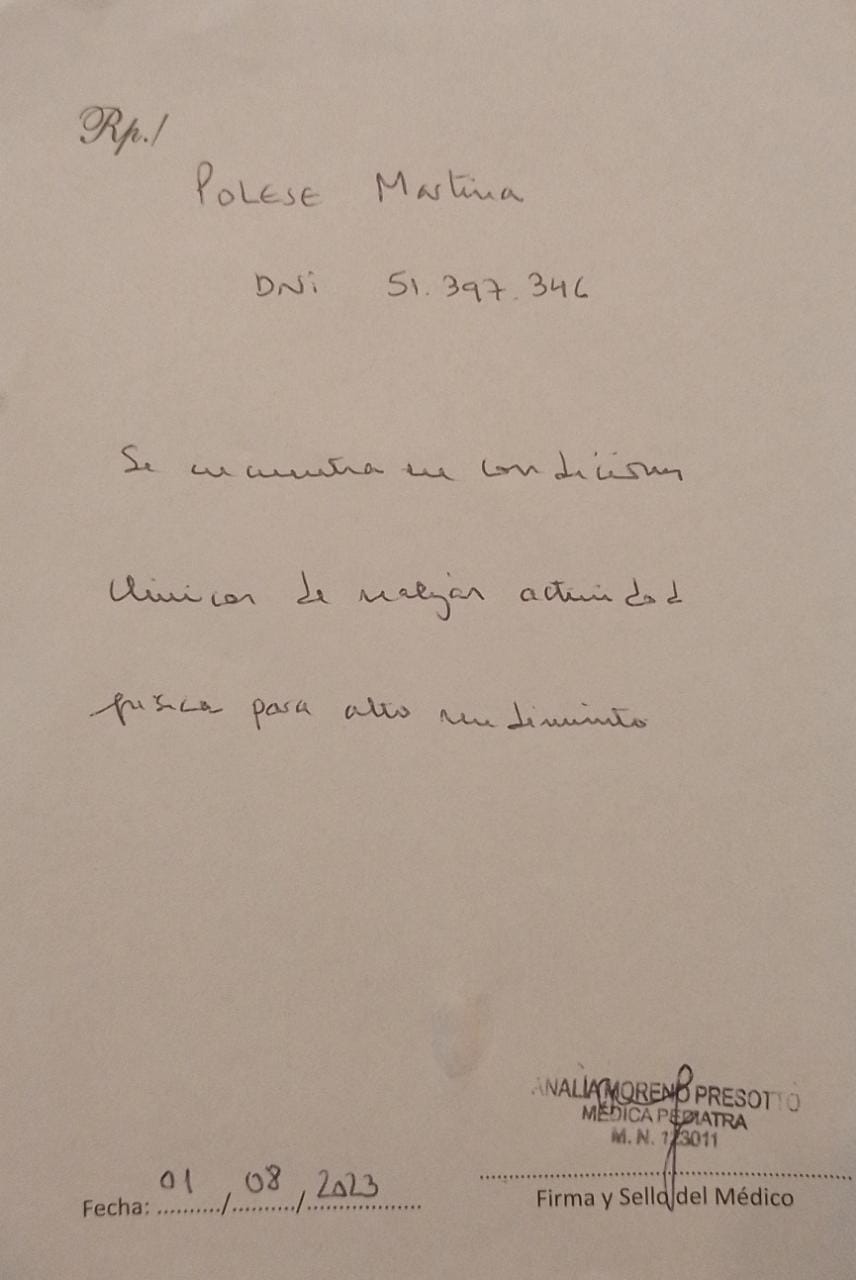 Rp./
POLESE Martina
DNi 51.397.346
Se encuentra en condiciones
clinicas de realizar actividad
fisica para alto rendimiento
ANALÍA MORENO PRESOTTO
MÉDICA PEDIATRA
M. N. 123011
Fecha: 01/08/2023
Firma y Sello del Médico